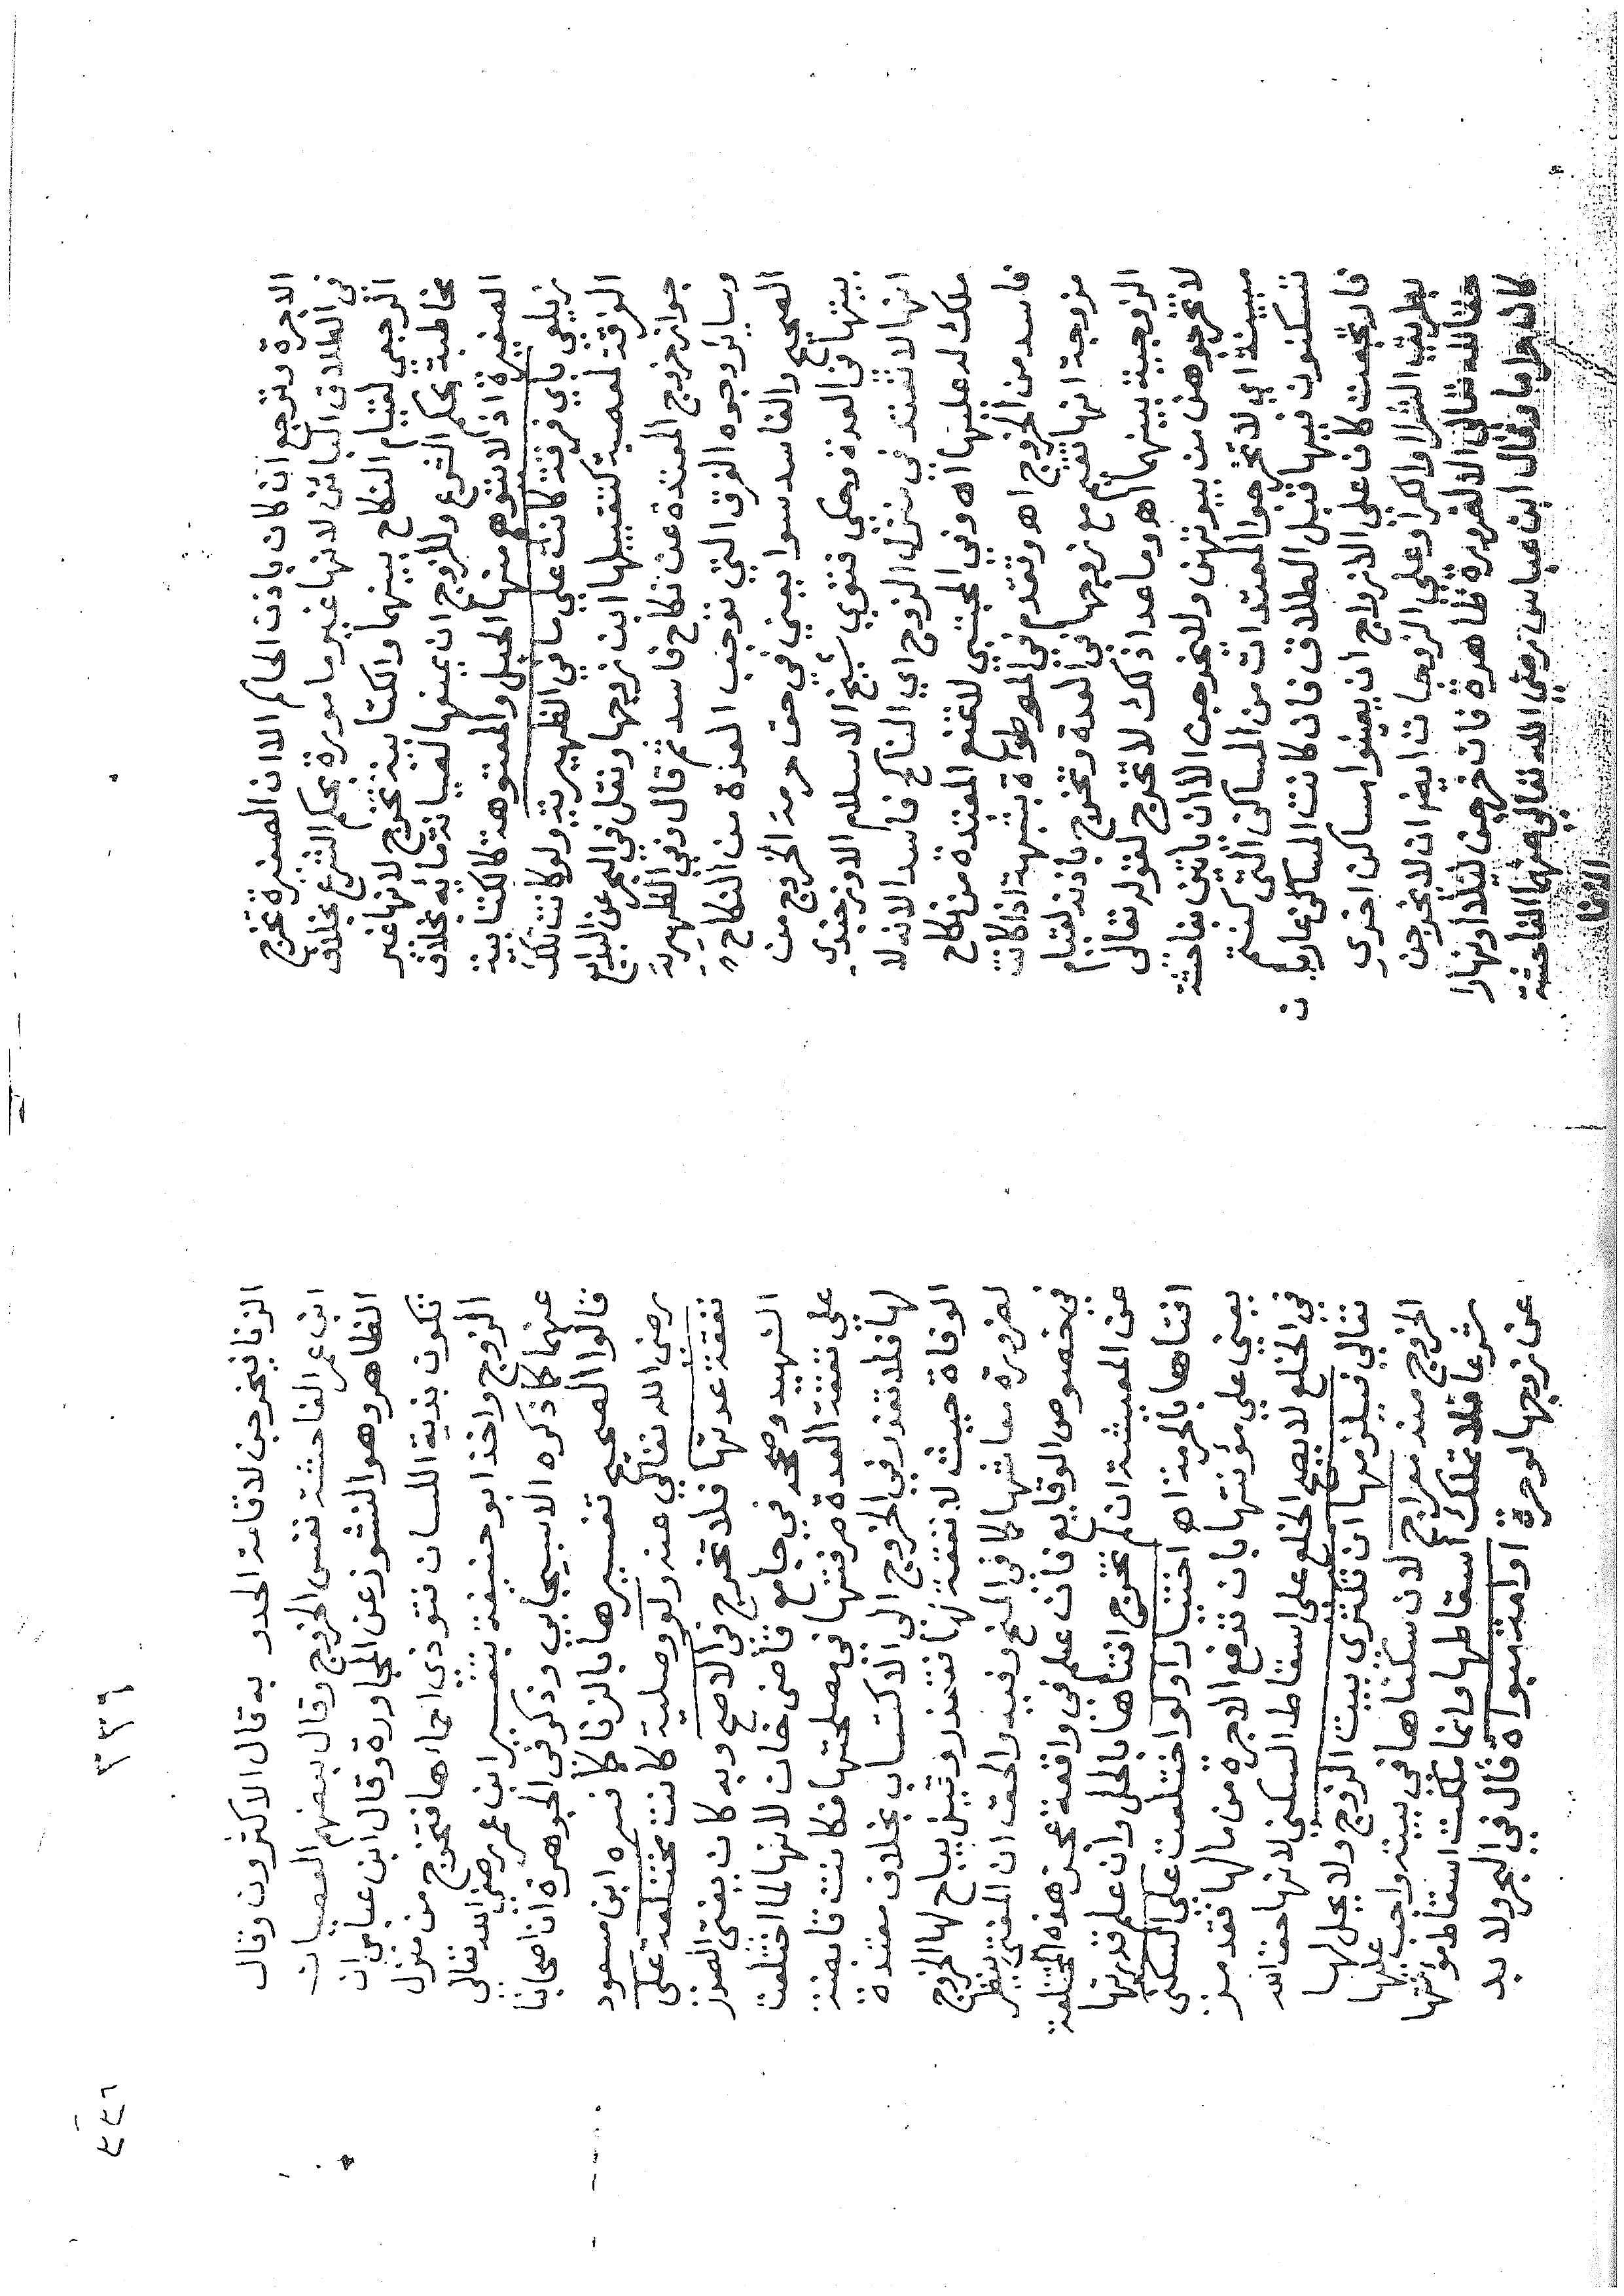 الاجرة وترجع ان كان باذن الحاكم الا ان الصغيرة تخرج
في الطلاق البائن لانها غير مامورة بحكم الشرع بخلاف
الرجعي لقيام النكاح بينهما والكتابية تخرج لانها غير
مخاطبة بحكم الشرع وللزوج ان يمنعها لصيانة مائه بخلاف
الصغيرة اذ لا يتوهم منها الحبل والمعتوهة كالكتابية
زيلعي باي فرقة كانت علي ما في الظهيرية ولو كانت تلك
الفرقة لمعصية كتقبيلها ابن زوجها ونقل في البحر عن البدايع
جواز خروج المعتدة عن نكاح فاسد ثم قال وفي الظهيرية
وساير وجوه الفرق التي توجب العدة من النكاح
الصحيح والفاسد سوا يعني في حق حرمة الخروج من
بيتها في العدة وحكي فتوي شيخ الاسلام الاوزجندي
انها لا تعتد في منزل الزوج اي الناكح فاسدا لانه لا
ملك له عليها اه وفي المجتبي المعتدة من نكاح
فاسد من الخروج اه وتقدم في الموطوأة بشبهة اذا كانت
مزوجة انها تقيم مع زوجها في العدة وتخرج باذنه لقيام
الزوجية بينهما اه وما عدا ذلك لا تخرج لقوله تعالى
لا تخرجوهن من بيوتهن ولا يخرجن الا ان ياتين بفاحشة
مبينة اي لا تخرجوا المعتدات من المساكن التي كنتم
تسكنون فيها قبل الطلاق فان كانت المساكن عارية
فارتجعت كان علي الازواج ان يعينوا مساكن اخري
بطريق الشرا والكرا وعلي الزوجات ايضا ان لا يخرجن
حقا لله تعالى الا لضرورة ظاهرة فان خرجن ليلا او نهارا
كان حراما وقال ابن عباس رضي الله تعالى عنهما الفاحشة
الزنا
٣٣٩
الزنا فيخرجن لاقامة الحدد به قال الاكثرون وقال
ابن عمر الفاحشة نفس الخروج وقال بعضهم العصيان
الظاهر وهو النشوز عن المجاورة وقال ابن عباس ان
تكون بذية اللسان تتوذي احماءها فتخرج من منزل
الزوج واخذ ابو حنيفة بتفسير ابن عمر رضي الله تعالى
عنهما كما ذكره الاسبيجابي وذكر في الجوهرة ان اصحابنا
قالوا الصحيح تفسيرها بالزنا كما فسره ابن مسعود
رضي الله تعالي عنه ولو وصلية كانت مختلعة علي
نفقة عدتها فلا تخرج في الاصح وبه كان يفتي الصدر
الشهيد وصححه في جامع قاضي خان لانها لما اختلعت
علي نفقة العدة صرفتها في مصلحتها فكانت قابضة
لها فلا تعذر في الخروج الي الاكتساب بخلاف معتدة
الوفاة حيث لا نفقة لها فتعذر وقيل يباح لها الخروج
لضرورة معاشها كما في المنح وفيه والحق ان المفتي ينظر
في خصوص الوقايع فان علم في واقعة عجز هذه المختلعة
عن المعيشة ان لم تخرج افتاها بالحل وان علم قدرتها
افتاها بالحرمة اه اختيار او لو اختلعت علي السكني
يعني علي مؤنتها بان تدفع الاجرة من مالها فقد مر
في الخلع لا يصح الخلع علي اسقاط السكني لانها حق الله
تعالي فيلزمها ان تكتري بيت الزوج ولا يحل لها
الخروج منه معراج لان سكناها في بيته واجب عليها
شرعا فلا تملك اسقاطها وانما ملكت اسقاط مؤنتها
عن زوجها لو حرة او امة مبوأة قال في البحر ولا بد
٤٤٦